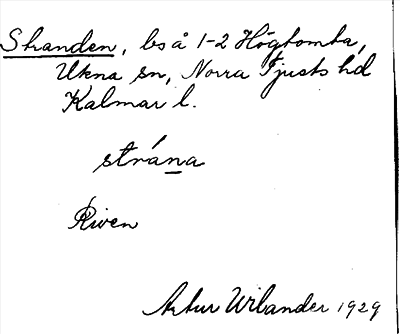 Stranden, bs å 1-2 Högtomta,
Ukna sn, Norra Tjusts hd
Kalmar l.
strána
Riven
Artur Wilander 1929